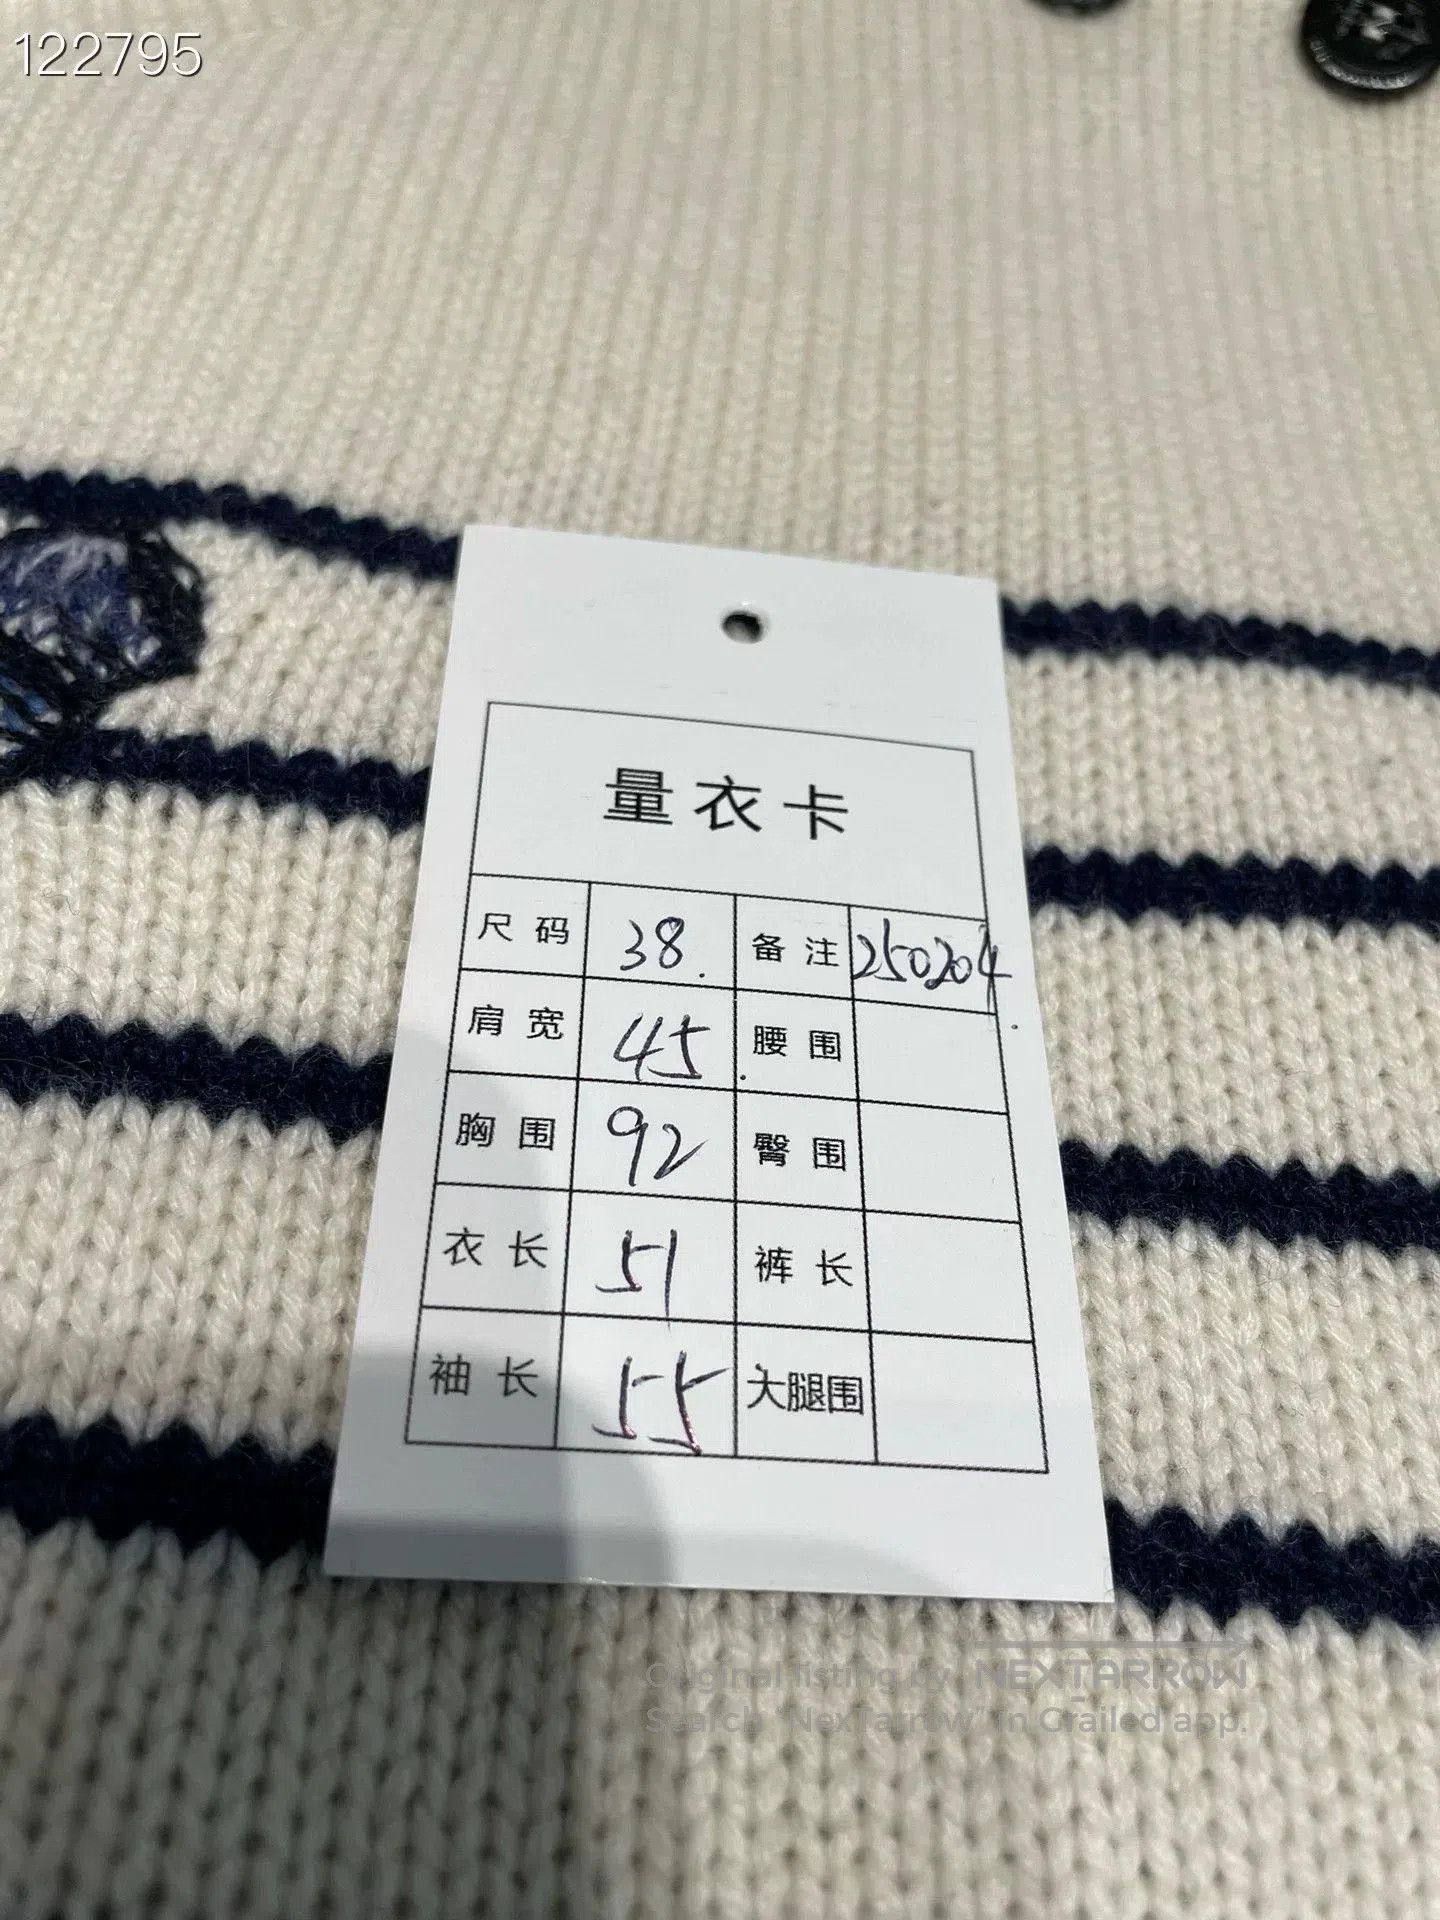 122795
量衣卡
尺码 38. 备注 250204
肩宽 45 腰围
胸围 92 臀围
衣长 51 裤长
袖长 55 大腿围
Original listing by NEXTARROW
Search "NexTarrow" in Grailed app.